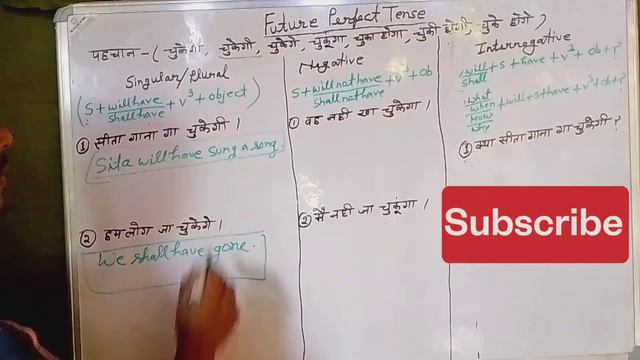 Future Perfect Tense
पहचान - ( चुकेगा, चुकेगी, चुकेगे, चुकूंगा, चुका होगा, चुकी होगी, चुके होगे )
Singular/Plural
( S + will have / shall have + V³ + object )
① सीता गाना गा चुकेगी ।
Sita will have sung a song.
② हम लोग जा चुकेगे ।
We shall have gone.
Negative
S + will not have / shall not have + V³ + ob
① वह नही खा चुकेगा ।
② मैं नही जा चुकूंगा ।
Interrogative
will / shall + S + have + V³ + ob + ?
What
When
How
Why
+ will + S + have + V³ + ob + ?
① क्या सीता गाना गा चुकेगी ?
Subscribe